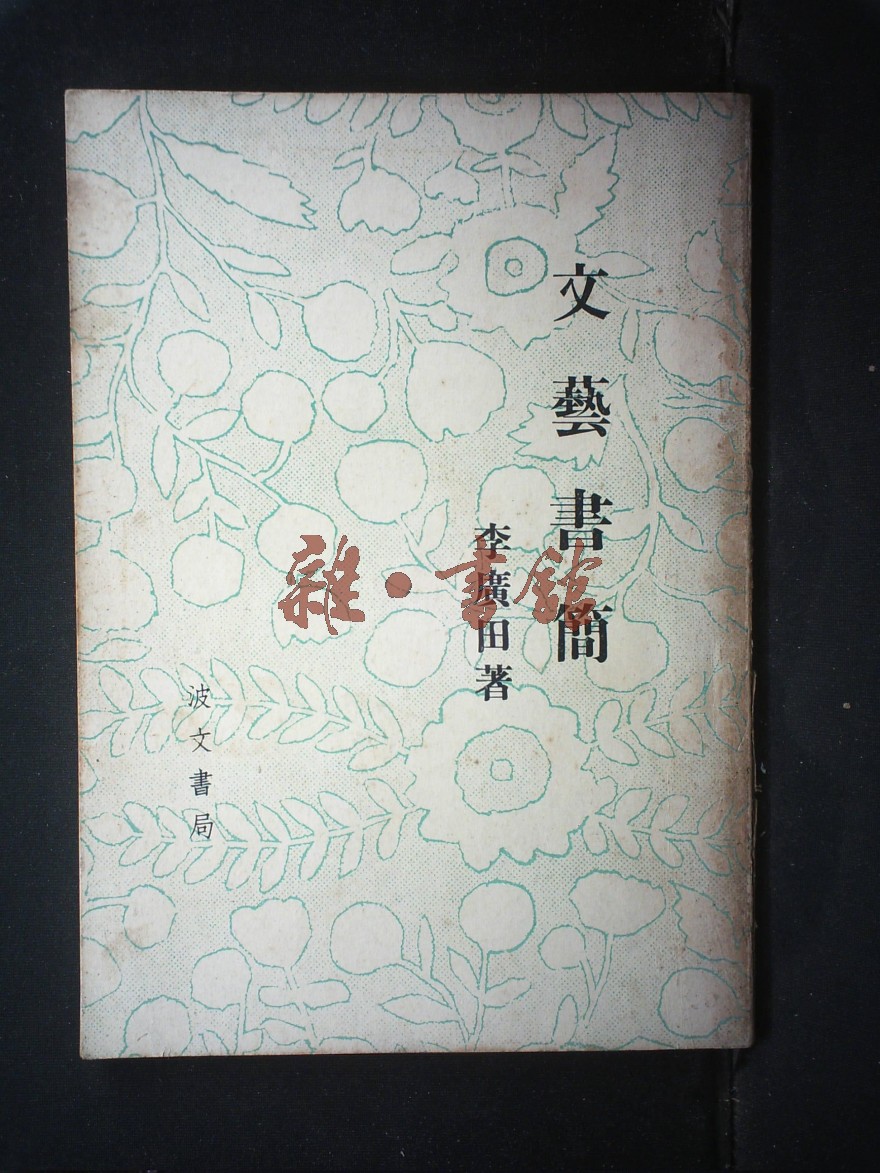 文藝書簡
李廣田著
波文書局
雜·書館